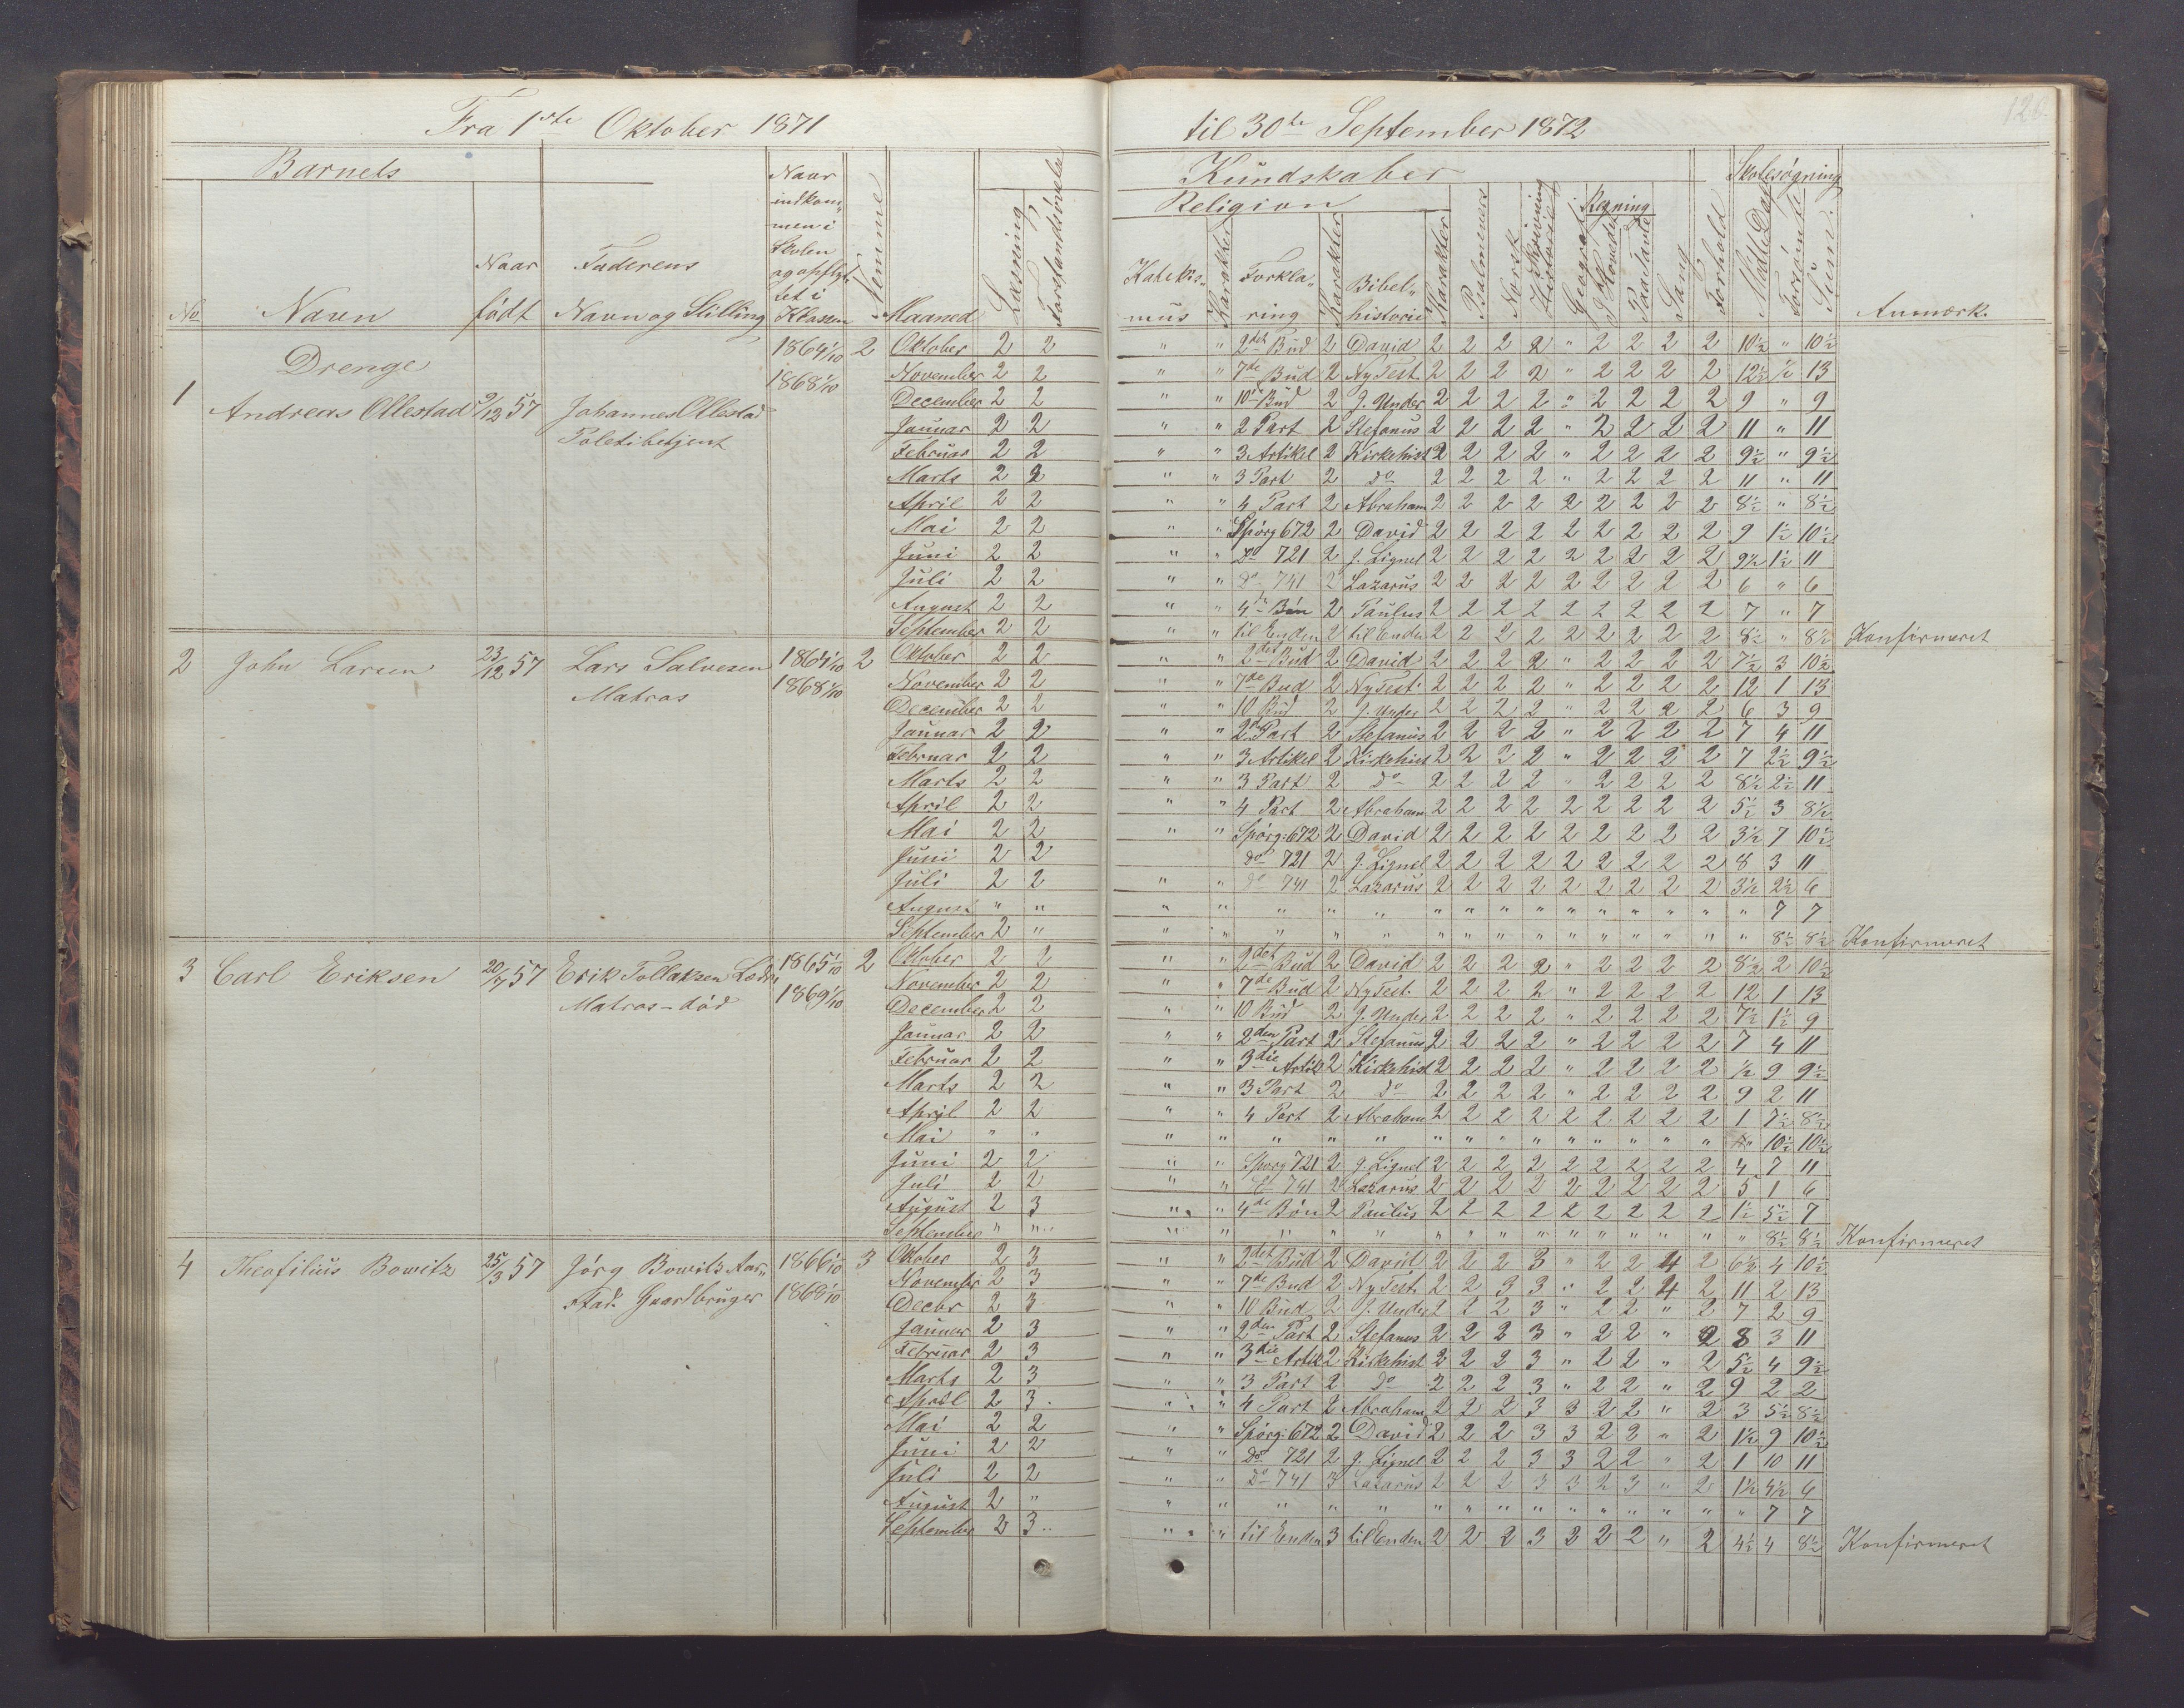 Fra 1ste Oktober 1871 til 30te September 1872
128.
Barnets
No Navn
Naar født
Faderens Navn og Stilling
Naar indkommen i Skolen og opflyttet i Klassen
Nemme
Maaned
Læsning
Forstandsøvelse
Kundskaber
Religion
Katekismus
Karakter
Forklaring
Karakter
Bibelhistorie
Karakter
Psalmevers
Norsk
Skrivning
Historie
Geografi
Regning
I Hovedet
Paa Tavle
Sang
Forhold
Skolesøgning
Mødte Dage
Forsømte
Sum
Anmærk.
Drenge
1 Andreas Ollestad 9/12 57 Johannes Ollestad Politibetjent 1864 1/10 1868 1/10 2
Oktober 2 2 " " 2det Bud 2 David 2 2 2 2 " 2 2 2 2 10½ " 10½
November 2 2 " " 7de Bud 2 Ny Test. 2 2 2 2 " 2 2 2 2 12½ ½ 13
December 2 2 " " 10 Bud 2 J. Under 2 2 2 2 " 2 2 2 2 9 " 9
Januar 2 2 " " 2 Part 2 Stefanus 2 2 2 2 " 2 2 2 2 11 " 11
Februar 2 2 " " 3 Artikel 2 Kirkehist 2 2 2 2 " 2 2 2 2 9½ " 9½
Marts 2 2 " " 3 Part 2 do 2 2 2 2 " 2 2 2 2 11 " 11
April 2 2 " " 4 Part 2 Abraham 2 2 2 2 2 2 2 2 2 8½ " 8½
Mai 2 2 " " Spörg 672 2 David 2 2 2 2 2 2 2 2 2 9 1½ 10½
Juni 2 2 " " Do 721 2 J. Lignel 2 2 2 2 2 2 2 2 2 9½ 1½ 11
Juli 2 2 " " Do 741 2 Lazarus 2 2 2 2 2 2 2 2 2 6 " 6
August 2 2 " " 4de Bön 2 Paulus 2 2 2 2 2 2 2 2 2 7 " 7
September 2 2 " " til Enden 2 til Enden 2 2 2 2 2 2 2 2 2 8½ " 8½ Konfirmeret
2 John Larsen 23/12 57 Lars Salvesen Matros 1864 1/10 1868 1/10 2
Oktober 2 2 " " 2det Bud 2 David 2 2 2 2 " 2 2 2 2 7½ 3 10½
November 2 2 " " 7de Bud 2 Ny Test. 2 2 2 2 " 2 2 2 2 12 1 13
December 2 2 " " 10 Bud 2 J. Under 2 2 2 2 " 2 2 2 2 6 3 9
Januar 2 2 " " 2n Part 2 Stefanus 2 2 2 2 " 2 2 2 2 7 4 11
Februar 2 2 " " 3 Artikel 2 Kirkehist 2 2 2 2 " 2 2 2 2 7 2½ 9½
Marts 2 2 " " 3 Part 2 do 2 2 2 2 " 2 2 2 2 8½ 2½ 11
April 2 2 " " 4 Part 2 Abraham 2 2 2 2 2 2 2 2 2 5½ 3 8½
Mai 2 2 " " Spörg: 672 2 David 2 2 2 2 2 2 2 2 2 3½ 7 10½
Juni 2 2 do 721 2 J. Lignel 2 2 2 2 2 2 2 2 2 8 3 11
Juli 2 2 " " do 741 2 Lazarus 2 2 2 2 2 2 2 2 2 3½ 2½ 6
August " " " " " " " " " " " " " " " " " 7 7
September 2 " " " " " " " " " " " " " " " " 8½ 8½ Konfirmeret
3 Carl Eriksen 20/7 57 Erik Tollaksen Matros - död 1865 1/10 1869 1/10 2
Oktober 2 2 " " 2det Bud 2 David 2 2 2 2 " 2 2 2 2 8½ 2 10½
November 2 2 " " 7de Bud 2 Ny Test. 2 2 2 2 " 2 2 2 2 12 1 13
December 2 2 " " 10 Bud 2 J. Under 2 2 2 2 " 2 2 2 2 7½ 1½ 9
Januar 2 2 " " 2den Part 2 Stefanus 2 2 2 2 " 2 2 2 2 7 4 11
Februar 2 2 " " 3die Artik 2 Kirkehist 2 2 2 2 " 2 2 2 2 ½ 9 9½
Marts 2 2 " " 3 Part 2 do 2 2 2 2 " 2 2 2 2 9 2 11
April 2 2 " " 4 Part 2 Abraham 2 2 2 2 2 2 2 2 2 1 7½ 8½
Mai " " " " " " " " " " " " " " " " " 10½ 10½
Juni 2 2 " " Spörg 721 2 J. Lignel 2 2 2 2 2 2 2 2 2 4 7 11
Juli 2 2 " " do 741 2 Lazarus 2 2 2 2 2 2 2 2 2 5 1 6
August 2 3 " " 4de Bön 2 Paulus 2 2 2 2 2 2 2 2 2 1½ 5½ 7
September " " " " " " " " " " " " " " " " " 8½ 8½ Konfirmeret
4 Theofilius Bowitz 25/3 57 Jörg Bowitz Aarstad. Gaardbruger 1866 1/10 1868 1/10 3
Oktober 2 3 " " 2det Bud 2 David 2 2 2 3 " 2 2 4 2 6½ 4 10½
November 2 3 " " 7de Bud 2 Ny Test. 2 2 3 3 " 2 2 4 2 11 2 13
Decbr 2 3 " " 10 Bud 2 J. Under 2 2 2 3 " 2 2 " 2 7 2 9
Januar 2 3 " " 2den Part 2 Stefanus 2 2 2 3 " 2 2 " 2 8 3 11
Februar 2 3 " " 3die Artik 2 Kirkehist 2 2 2 3 " 2 2 " 2 5½ 4 9½
Marts 2 3 " " 3 Part 2 do 2 2 2 3 " 2 2 " 2 9 2 2
April 2 3 " " 4 Part 2 Abraham 2 2 2 3 3 2 2 " 2 3 5½ 8½
Mai 2 2 " " Spörg: 672 2 David 2 2 2 3 3 2 2 " 2 1½ 9 10½
Juni 2 2 " " Do 721 2 J. Lignel 2 2 2 3 3 2 2 " 2 1 10 11
Juli 2 2 " " Do 741 3 Lazarus 2 2 2 3 3 2 3 " 2 1½ 4½ 6
August 2 " " " " " " " " " " " " " " " " 7 7
September 2 3 " " til Enden 3 til Enden 2 2 2 3 2 2 2 " 2 4½ 4 8½ Konfirmeret